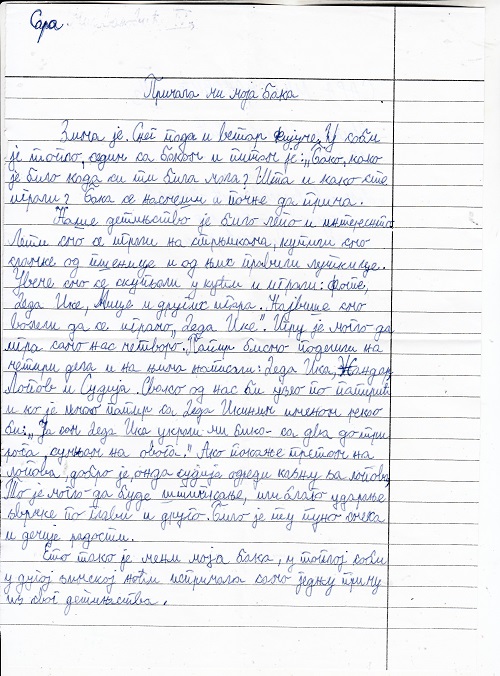 Сара
Причала ми моја бака
Зима је. Снег пада и ветар фијуче. У соби
је топло, седим са баком и питам је: „Бако, како
је било када си ти била мала? Шта и како сте
играли? Бака се насмеши и почне да прича.
Наше детињство је било лепо и интересно
Лети смо се играли на стрњикама, купили смо
сламке од пшенице и од њих правили луткице.
Увече смо се скупљали у кући и играли: фоте,
Деда Ике, Мице и других игара. Највише смо
волели да се играмо „Деда Ике". Игру је могло да
игра само нас четворо. Папир бисмо поделили на
четири дела и на њима написали: Деда Ика, Жандар
Лопов и Судија. Свако од нас би узео по папирић
и ко је имао папир са Деда Икиним именом рекао
би: „Ја сам Деда Ика украли ми бика са два до три
рога, сумњам на овога." Ако покаже прстом на
лопова, добро је, онда судија одреди казну за лопова,
То је могло да буде шишкање, или благо ударање
зврчке по глави и друго. Било је ту пуно смеха
и дечије радости.
Ето тако је мени моја бака, у топлој соби
у дугој зимској ноћи испричала само једну причу
из свог детињства.